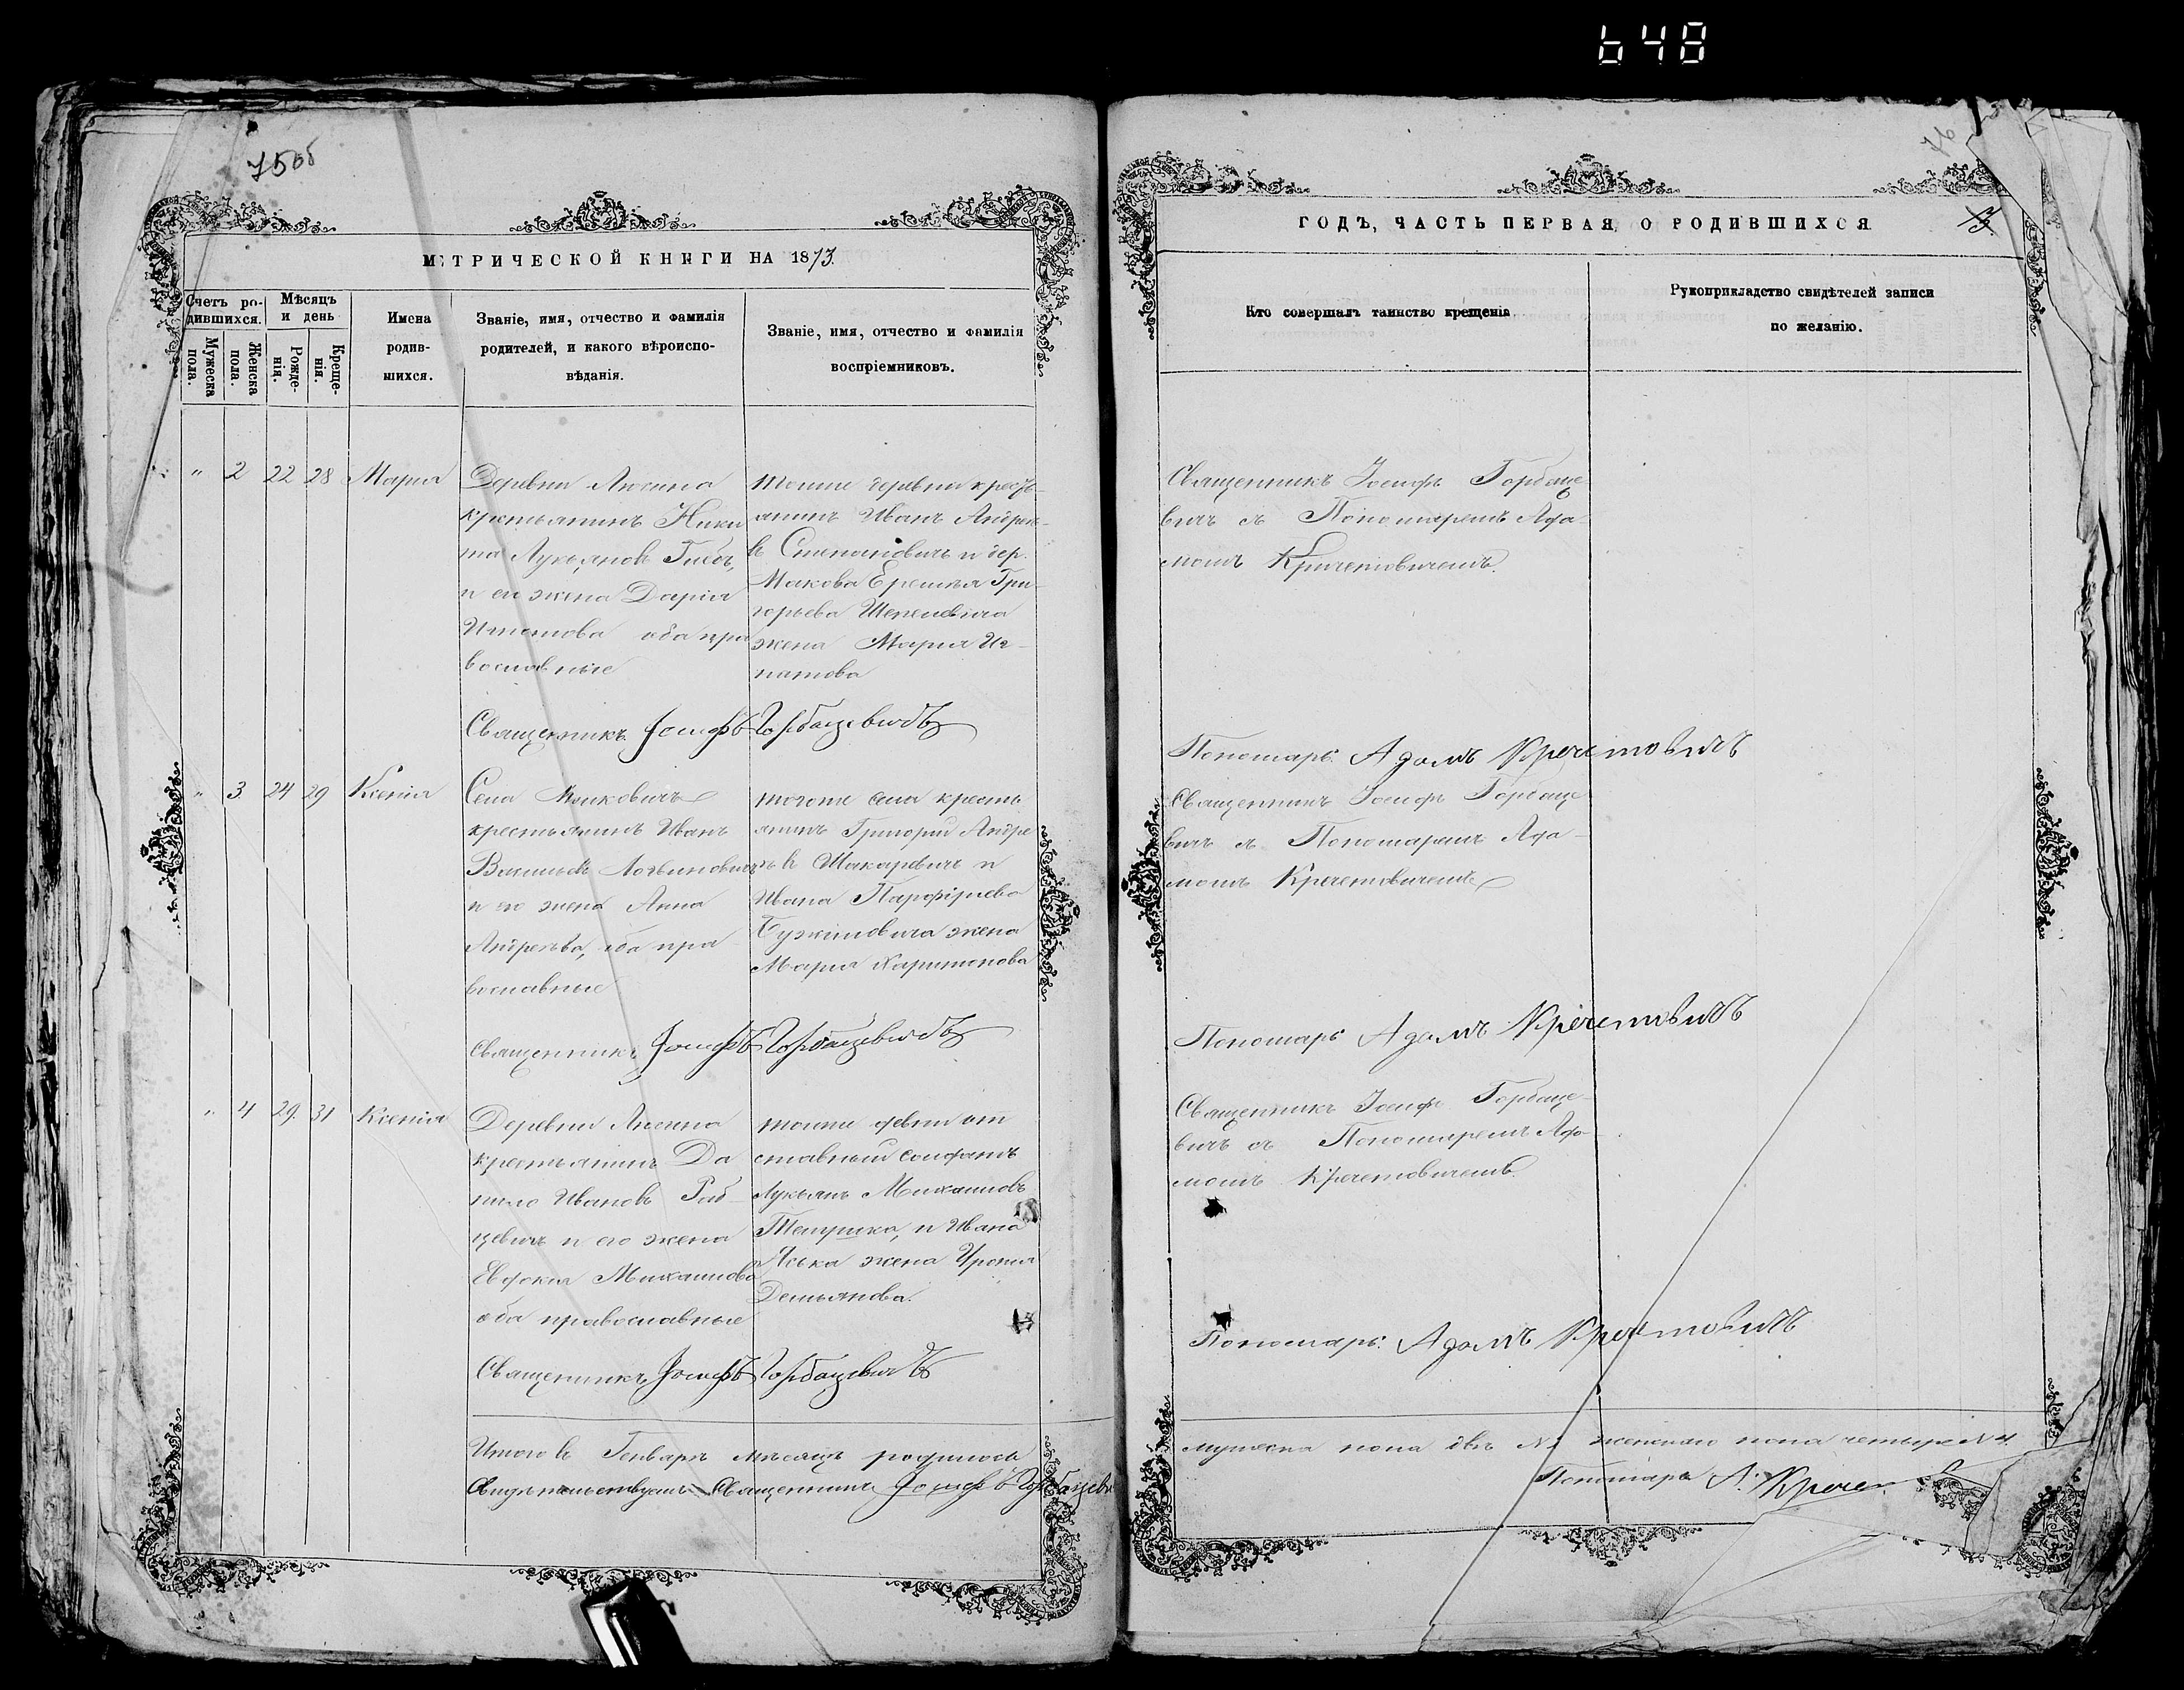 648
75об
76
МЕТРИЧЕСКОЙ КНИГИ НА 1873.
Счетъ ро-
дившихся.
Мужеска
пола.
Женска
пола.
Мѣсяцъ
и день
Рожде-
нія.
Креще-
нія.
Имена
родив-
шихся.
Званіе, имя, отчество и фамилія
родителей, и какого вѣроиспо-
вѣданія.
Званіе, имя, отчество и фамилія
воспріемниковъ.
" 2 22 28 Марія
Деревни Люсина
крестьянинъ Ники
та Лукьяновъ
и его жена Дарія
Игнатова оба пра
вославные
тойже деревни кресть-
янинъ Иванъ Андрее-
въ Степановичъ и дер.
Макова Еремѣя Гри-
горьева Шепелевича
жена Марія Иг-
натова
Священникъ Іосифъ Горбацевичъ
" 3 24 29 Ксенія
Села
крестьянинъ Иванъ
Васильевъ Логвиновичъ
и его жена Анна
Андреева, оба пра
вославные
тогоже села кресть
янинъ Григорій Андре
евъ Макаревичъ и
Ивана Парфіріева
жена
Марія Харитонова
Священникъ Іосифъ Горбацевичъ
" 4 29. 31 Ксенія
Деревни Люсина
крестьянинъ Да
нило Ивановъ Раб
цевичъ и его жена
Евдокія Михайлова
оба православные
тойже девни от
ставный солдатъ
Лукьянъ Михайловъ
и Ивана
жена Ирина
Демьянова.
Священникъ Іосифъ Горбацевичъ
Итого въ Генварѣ мѣсяцѣ родилось
Свидѣтельствуемъ Священникъ Іосифъ Горбацевичъ
ГОДЪ, ЧАСТЬ ПЕРВАЯ, О РОДИВШИХСЯ.
Кто совершалъ таинство крещенія
Рукоприкладство свидѣтелей записи
по желанію.
Священникъ Іосифъ Горбаце
вичъ съ Пономаремъ Ада-
момъ Кречетовичемъ.
Пономарь: Адамъ Кречетовичъ
Священникъ Іосифъ Горбаце
вичъ съ Пономаремъ Ада-
момъ Кречетовичемъ
Пономарь: Адамъ Кречетовичъ
Священникъ Іосифъ Горбаце-
вичъ съ Пономаремъ Ада-
момъ Кречетовичемъ.
Пономарь: Адамъ Кречетовичъ
мужеска пола два № женскаго пола четыре № 4.
Пономарь А. Кречет